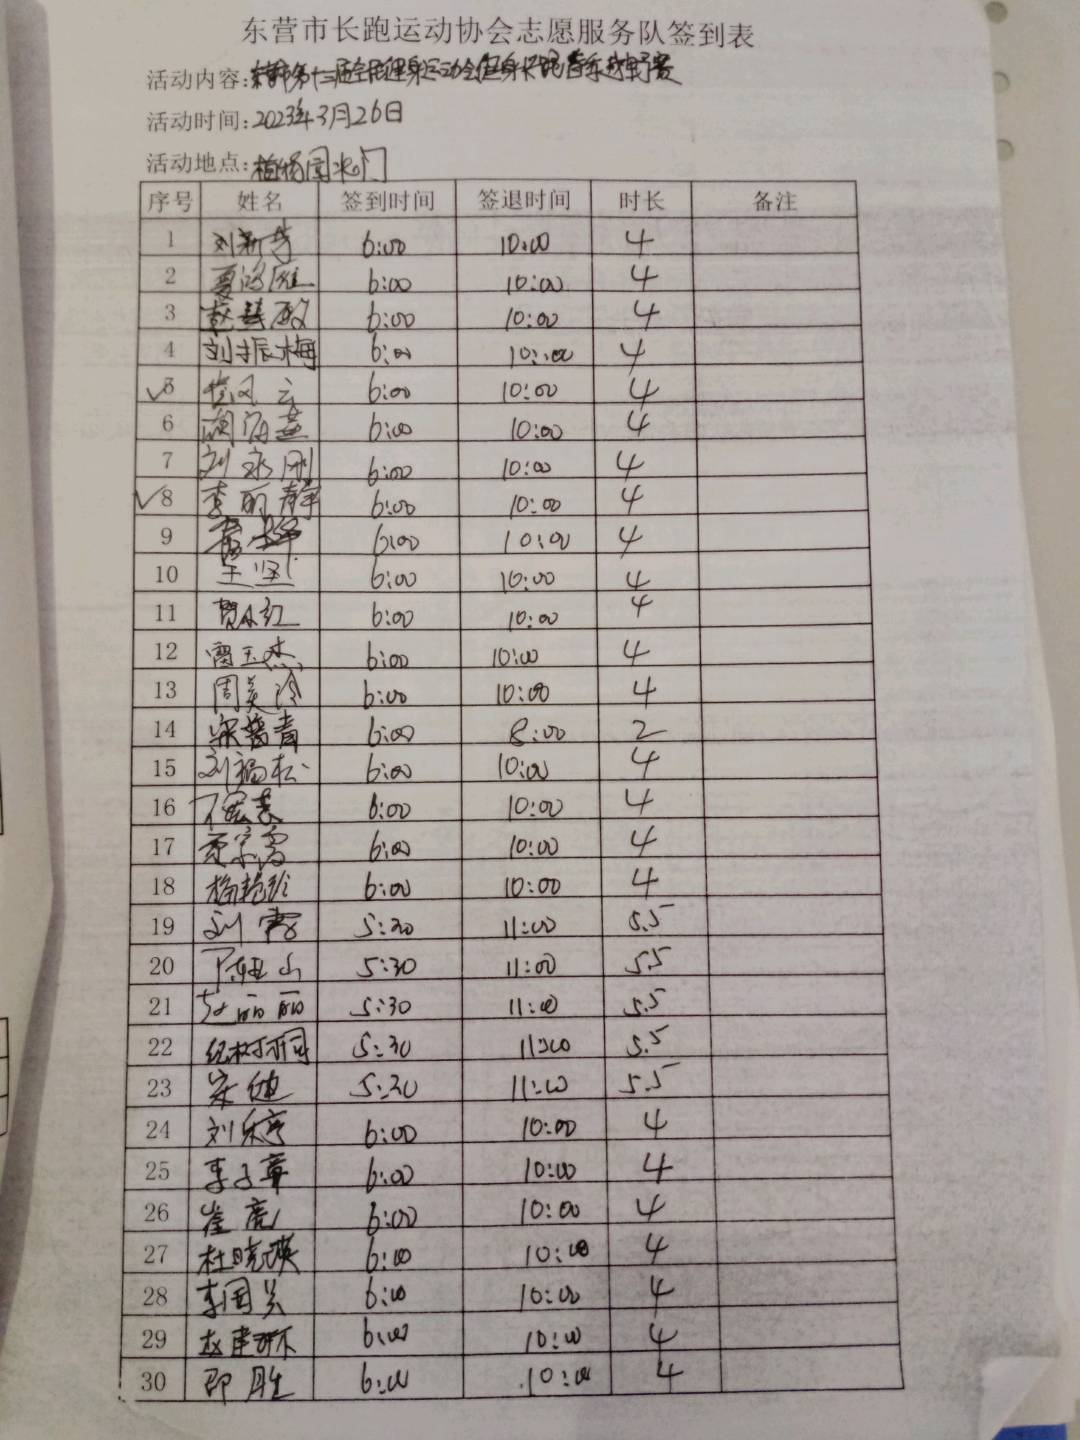 东营市长跑运动协会志愿服务队签到表
活动内容:第十三届全民健身运动会健身长跑暨春季越野赛
活动时间:2023年3月26日
活动地点:植物园北门
序号 姓名 签到时间 签退时间 时长 备注
1 刘新芳 6:00 10:00 4
2 夏鸿雁 6:00 10:00 4
3 赵慧敏 6:00 10:00 4
4 刘振梅 6:00 10:00 4
✓5 风云 6:00 10:00 4
6 海燕 6:00 10:00 4
7 刘永刚 6:00 10:00 4
✓8 李丽静 6:00 10:00 4
9 6:00 10:00 4
10 王坚 6:00 10:00 4
11 贺小红 6:00 10:00 4
12 雷玉杰 6:00 10:00 4
13 周美玲 6:00 10:00 4
14 青 6:00 8:00 2
15 刘福松 6:00 10:00 4
16 6:00 10:00 4
17 6:00 10:00 4
18 梅艳玲 6:00 10:00 4
19 刘霞 5:30 11:00 5.5
20 陈山 5:30 11:00 5.5
21 赵丽丽 5:30 11:00 5.5
22 纪树桐 5:30 11:00 5.5
23 宋健 5:30 11:00 5.5
24 刘乐亭 6:00 10:00 4
25 李子章 6:00 10:00 4
26 崔亮 6:00 10:00 4
27 杜晓瑛 6:00 10:00 4
28 李国兰 6:00 10:00 4
29 赵建环 6:00 10:00 4
30 邵胜 6:00 10:00 4